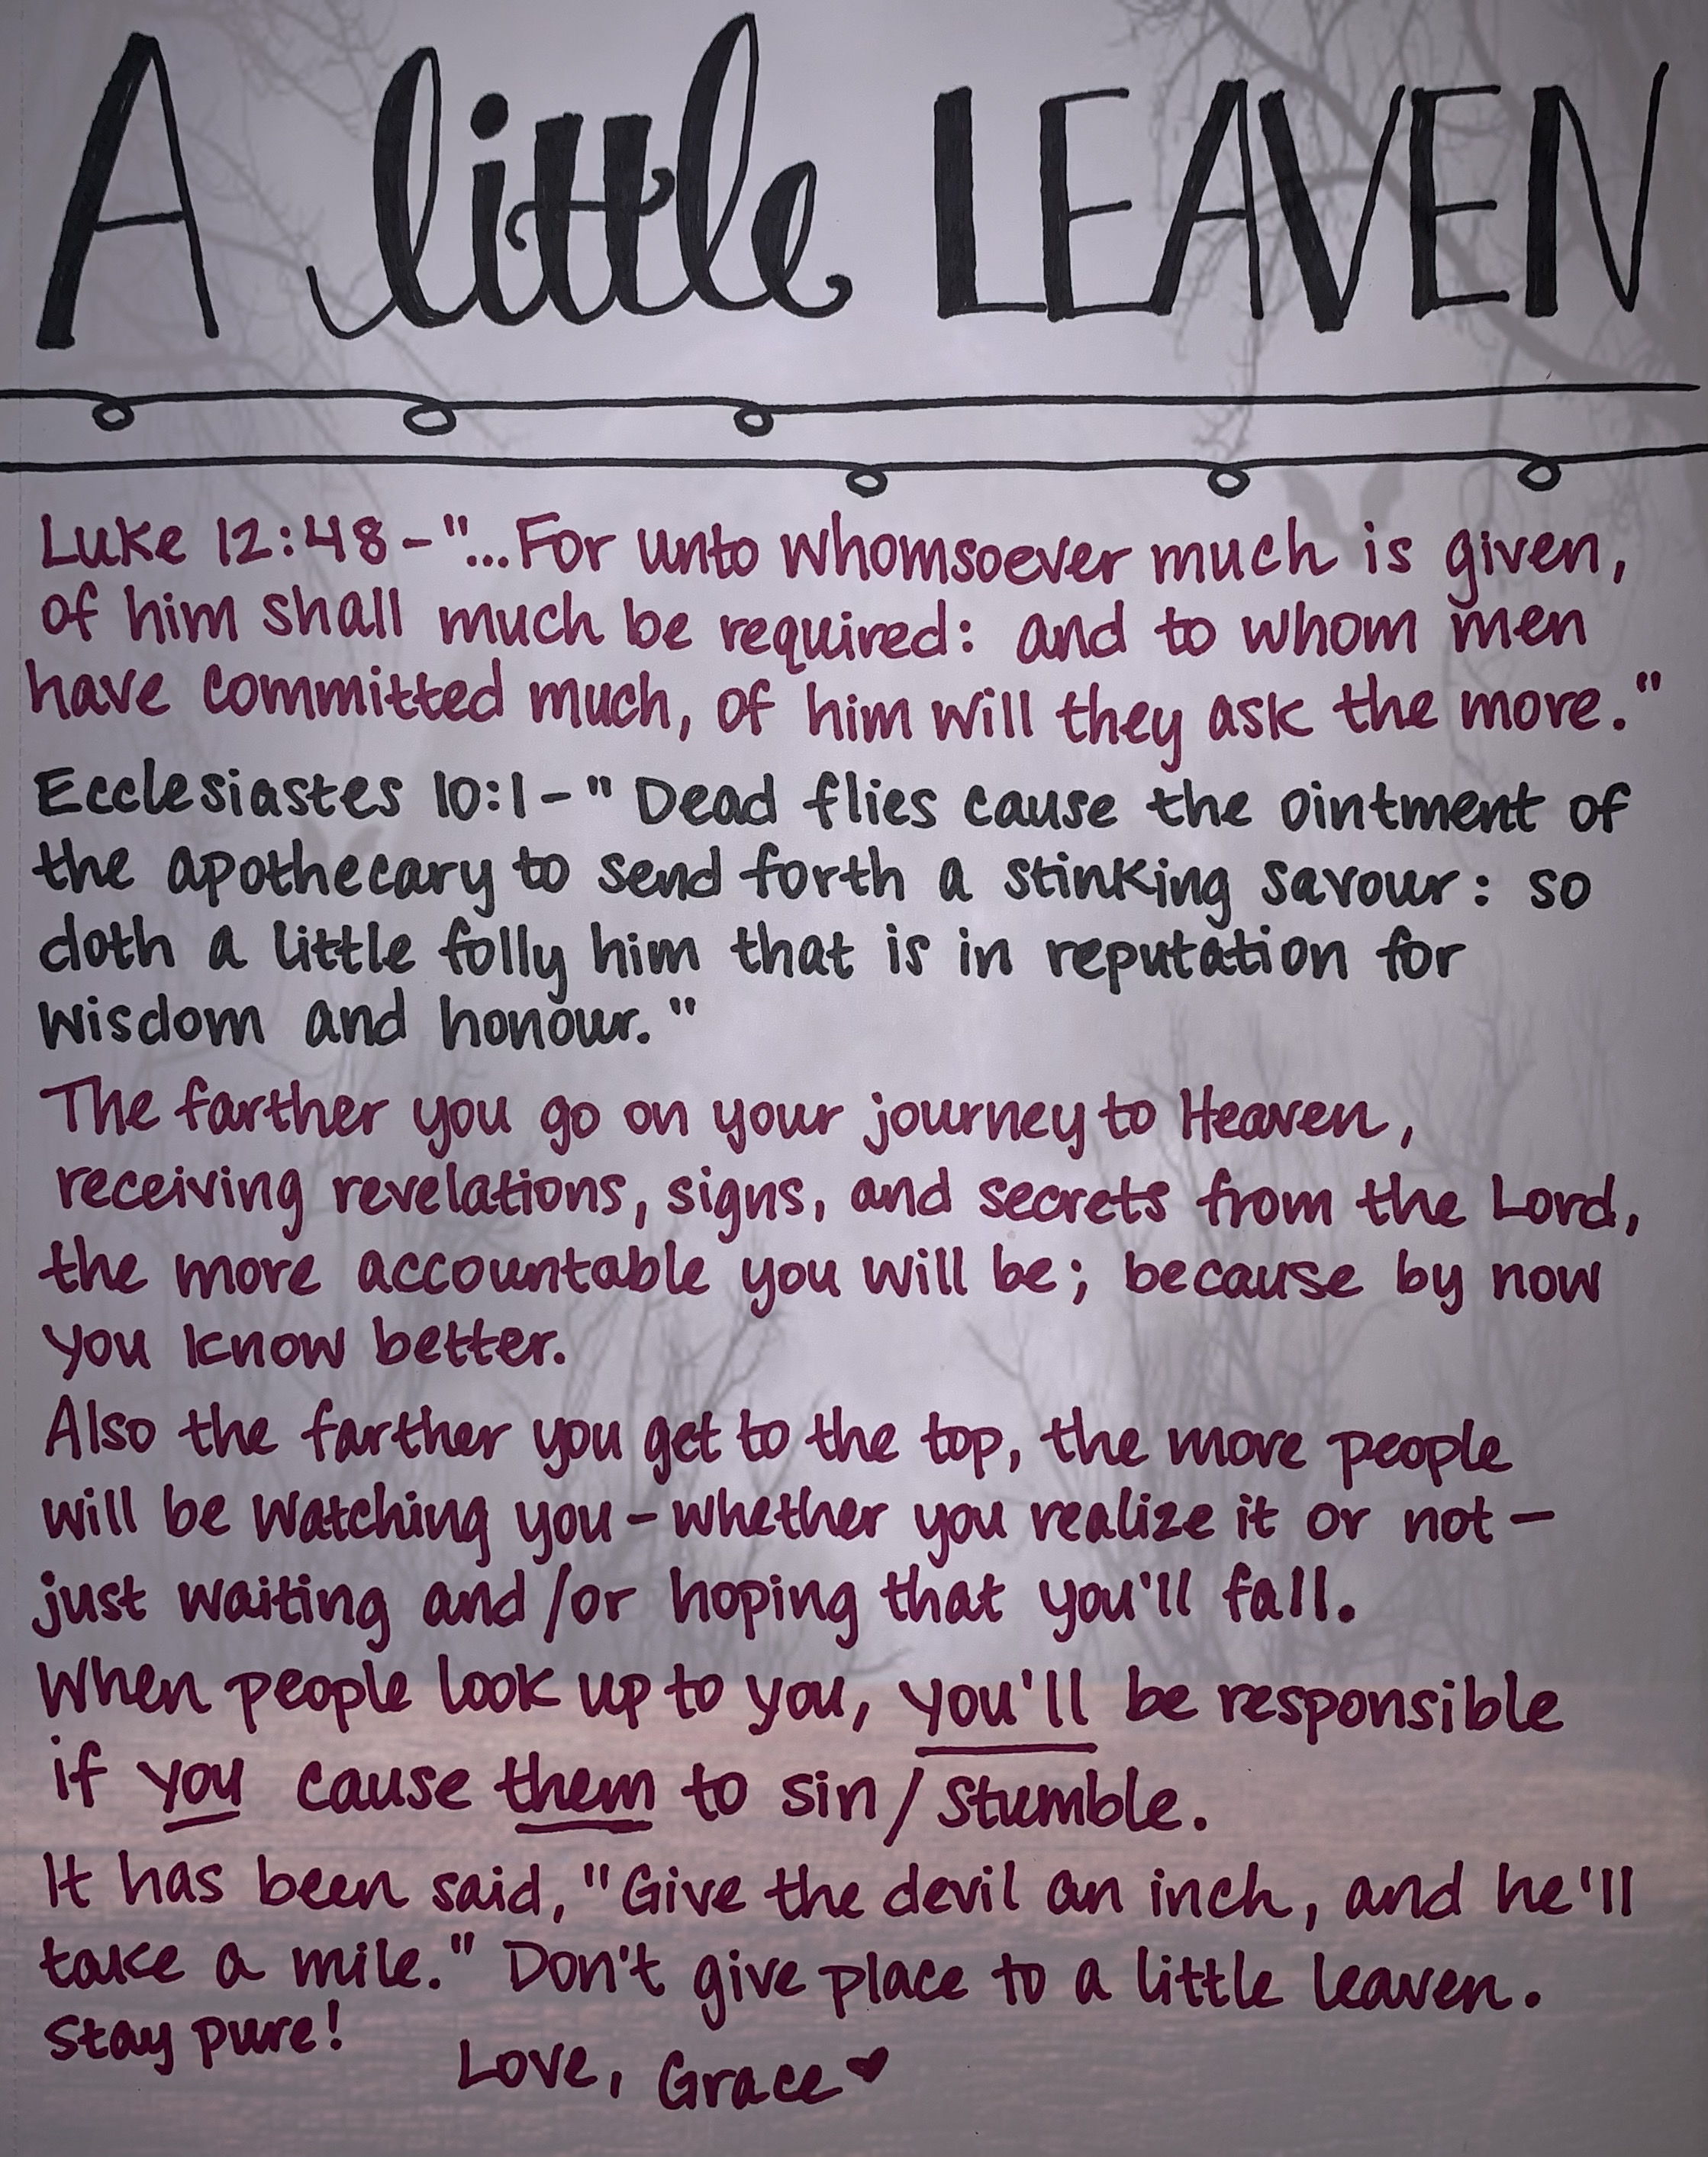 A little LEAVEN
Luke 12:48-"...For unto whomsoever much is given,
of him shall much be required: and to whom men
have committed much, of him will they ask the more."
Ecclesiastes 10:1-"Dead flies cause the ointment of
the apothecary to send forth a stinking savour: so
doth a little folly him that is in reputation for
wisdom and honour."
The farther you go on your journey to Heaven,
receiving revelations, signs, and secrets from the Lord,
the more accountable you will be; because by now
you know better.
Also the farther you get to the top, the more people
will be watching you-whether you realize it or not-
just waiting and/or hoping that you'll fall.
When people look up to you, you'll be responsible
if you cause them to sin/stumble.
It has been said, "Give the devil an inch, and he'll
take a mile." Don't give place to a little leaven.
Stay pure!
Love, Grace♥